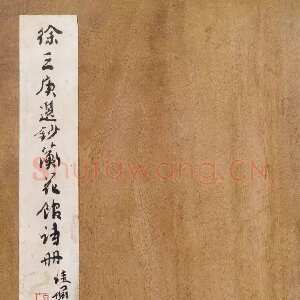 徐三庚選鈔蘅花館詩册
Shufawang.CN